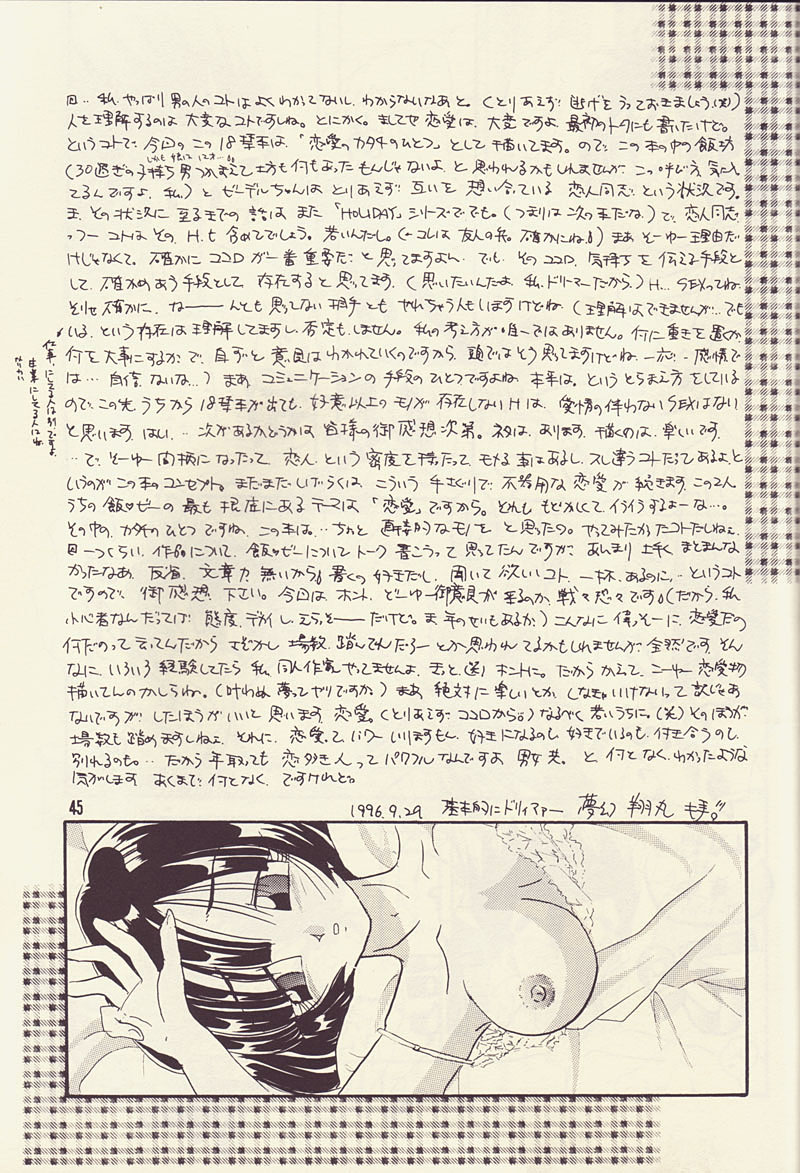 回‥私、やっぱり男の人のコトはよくわかってないし、わからないなあと。(とりあえず逃げをうっておきましょう(笑))
人を理解するのは大変なコトですね。とにかく。ましてや恋愛は、大変ですよ。最初のトークにも書いたけど。
というコトで、今回のこの18禁本は、「恋愛のカタチのひとつ」として描いてます。ので、この本の中の飯坊
(30過ぎの子持ち男つかまえて坊も何もあったもんじゃないよ、と思われるかもしれませんが、この呼び方、気に入っ
てるんですよ、私。)とビーデルちゃんは とりあえず互いを想い合っている 恋人同志、という状況です。
ま、その状況に至るまでの話は また「HOLIDAY」シリーズででも。(つまりは次の本だな。)で、恋人同志、
っつーコトはその、H.も含めてでしょう。若いんだし。(←コレは友人の弁。確かにね。)まあ そーゆー理由だ
けじゃなくて。確かにココロが一番重要だと思ってますよん。でも、そのココロ、気持ちを伝える手段と
して、確かめあう手段として 存在すると思ってます。(思いたいんだよ、私、ドリーマーだから。)H…SEXってね。
そりゃ確かに、なーーんとも思ってない相手とも やれちゃう人もいますけどね、(理解はできませんが…でも
いる、という存在は理解してますし、否定もしません。私の考え方が唯一ではありません。何に重きを置くか、
何を大事にするか、で、自ずと意見はわかれていくのですから、頭ではそう思ってますけどね、一応。‥感情で
は…自信、ないな…)まあ、コミュニケーションの手段のひとつですよね。本年は。というとらえ方をしている
ので、この先、うちから18禁本が出ても、好意以上のモノが存在しないHは、愛情の伴わないSEXはない
と思います。はい…次があるかどうかは皆様の御感想次第。ネタは、あります。描くのは、楽しいです。
…で、そーゆー間柄になったって 恋人、という密度を持ったって、モメる事はあるし、スレ違うコトだってあるよ、と
いうのがこの本のコンセプト。まだまだしばらくは、こういう手さぐりで、不器用な恋愛が続きます、この2人
うちの飯♡ビーの最も根底にあるテーマは「恋愛」ですから。とれもどかしくてイライラするよーな…。
その中の、カタチのひとつですね、この本は。‥ちょっと 実験的なモノを と思ったの。やってみたかったコトだしねぇ。
回一つくらい、作品について、飯♡ビーについてトーク書こうって思ってたんですが、あんまり上手くまとまんな
かったなあ。反省。文章力無いから。書くの好きだし、聞いて欲しいコト、一杯、あるのに…というコト
ですので、御感想 下さい。今回は ホント、どーゆー御意見が来るのか、戦々恐々です。(だから、私
小心者なんだってば 態度、デカイし、えらそーだけど。ま、年のせいもあるか。)こんなに偉そーに、恋愛だの
何だのって言ってんだから さぞかし 場数、踏んでんだろーとか思われてるかもしれませんが、全然です。そん
なに、いろいろ経験してたら 私、同人作家、やってませんよ、きっと。(笑)ホントに。だから かえって、こーゆー恋愛物
描いてんのかしらね。(叶わぬ夢ってヤツですか)まあ 絶対に楽しいとか、しなきゃいけないって訳じゃあ
ないですが したほうがいいと思います、恋愛。(とりあえず ココロから)なるべく若いうちに。(笑)そのほうが、
場数も踏めますしねぇ。それに、恋愛って、パワーいりますもん。好きになるのも、好きでいるのも、付き合うのも、
別れるのも。‥だから年取っても 恋多き人ってパワフルなんですよ 男女共。と、何となく、わかったような
気がします。あくまで、何となく、ですけれど。
仕事、にしてる人は別ですよ。
45
1996.9.29 基本的にドリィマァー 夢幻 翔丸